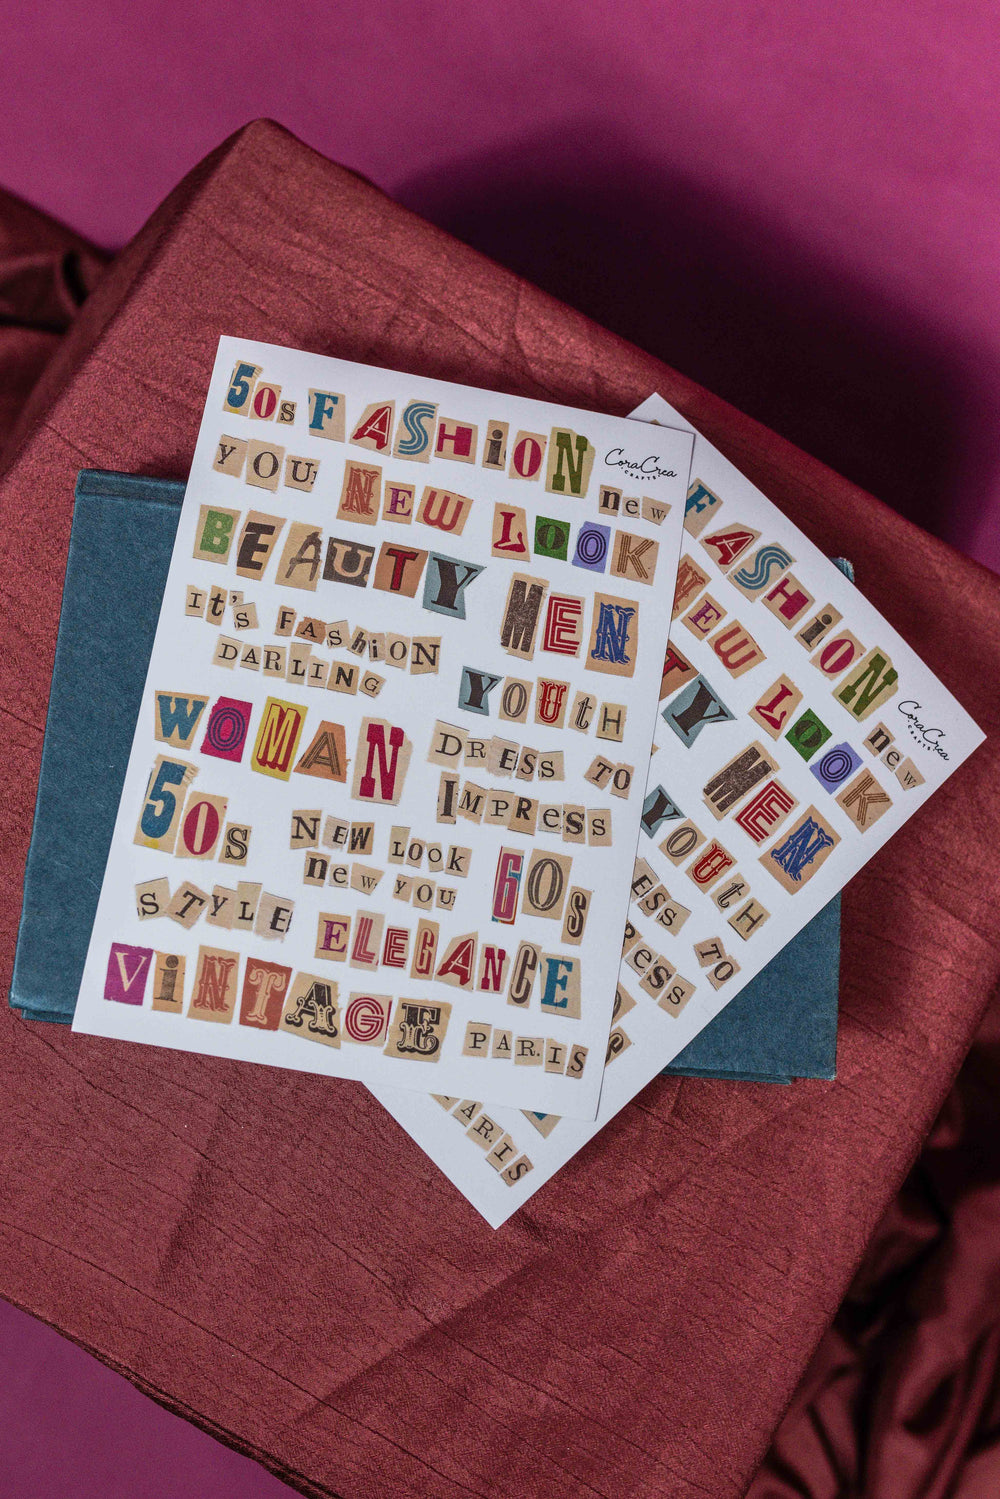 50s FASHION
CoraCrea
CRAFTS
YOU NEW new
LOOK
BEAUTY MEN
It's FASHION
DARLING
YOUTH
WOMAN
DRESS TO
IMPRESS
50s
NEW LOOK
new YOU
60s
STYLE
ELEGANCE
VINTAGE
PARIS
FASHION
CoraCrea
CRAFTS
NEW new
LOOK
TY MEN
YOUTH
ESS TO
RESS
s
ARIS